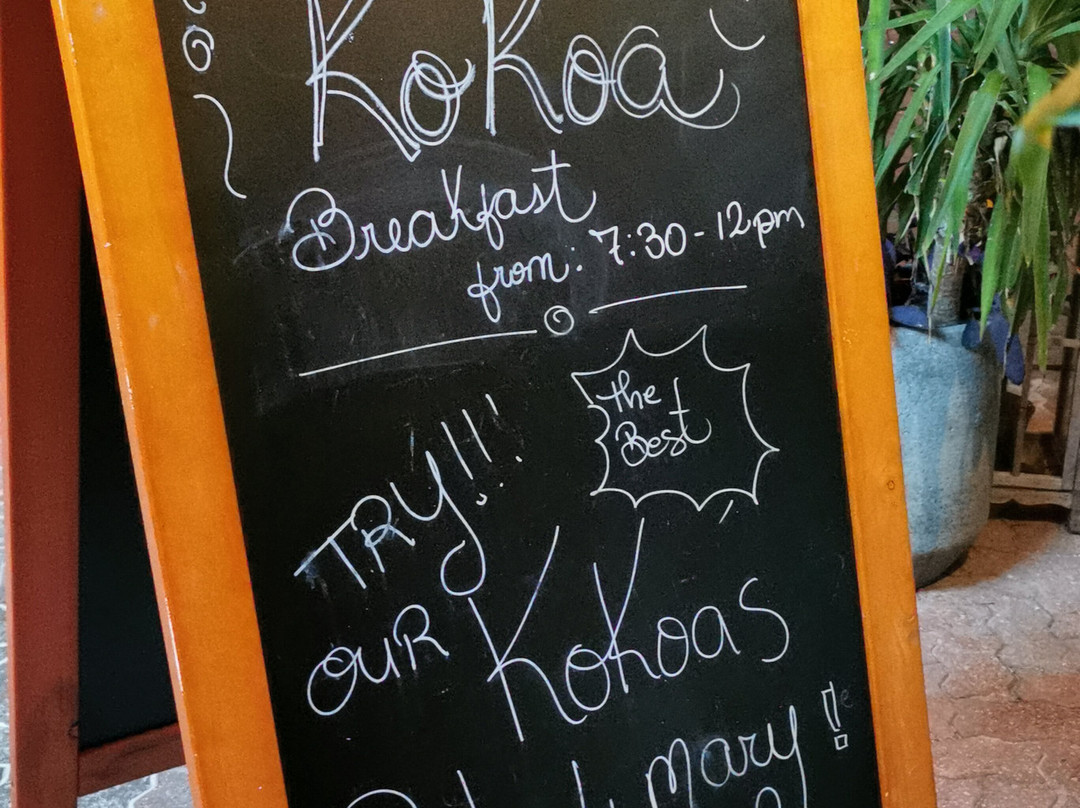 KoKoa
Breakfast
from: 7:30 - 12pm
the
Best
TRY!!!
OUR Kokoas
Mary!